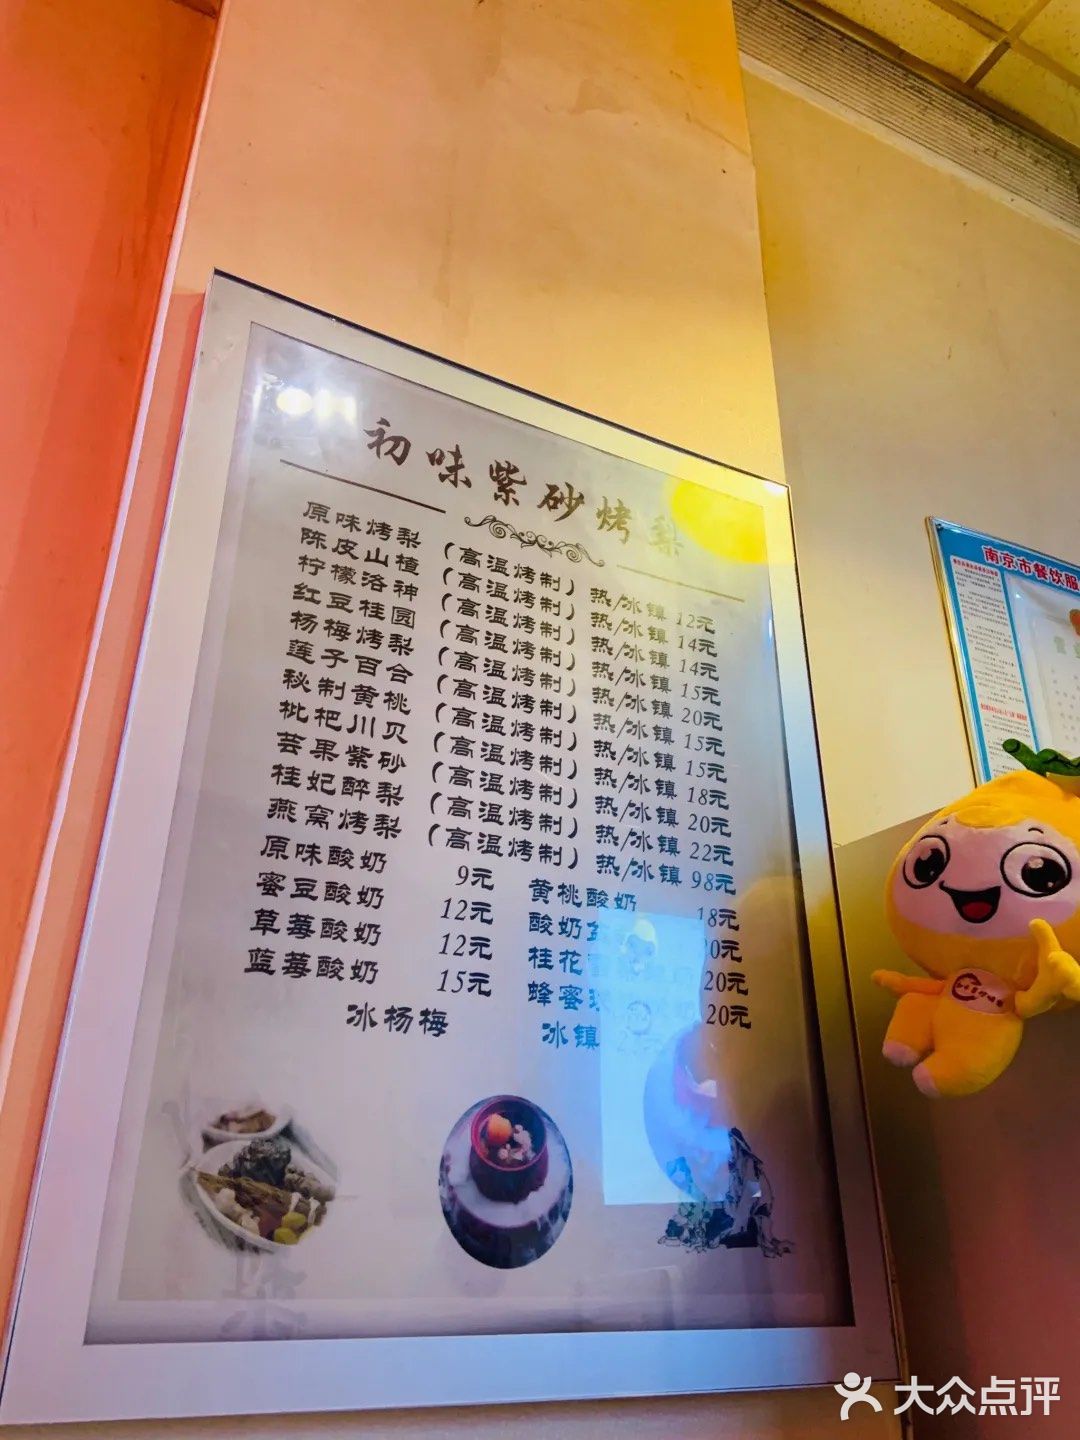 初味紫砂烤梨
原味烤梨 (高温烤制) 热/冰镇 12元
陈皮山楂 (高温烤制) 热/冰镇 14元
柠檬洛神 (高温烤制) 热/冰镇 14元
红豆桂圆 (高温烤制) 热/冰镇 15元
杨梅烤梨 (高温烤制) 热/冰镇 20元
莲子百合 (高温烤制) 热/冰镇 15元
秘制黄桃 (高温烤制) 热/冰镇 15元
枇杷川贝 (高温烤制) 热/冰镇 18元
芸果紫砂 (高温烤制) 热/冰镇 20元
桂妃醉梨 (高温烤制) 热/冰镇 22元
燕窝烤梨 (高温烤制) 热/冰镇 98元
原味酸奶 9元 黄桃酸奶 18元
蜜豆酸奶 12元 酸奶 20元
草莓酸奶 12元 桂花 20元
蓝莓酸奶 15元 蜂蜜 20元
冰杨梅 冰镇
南京市餐饮服
大众点评